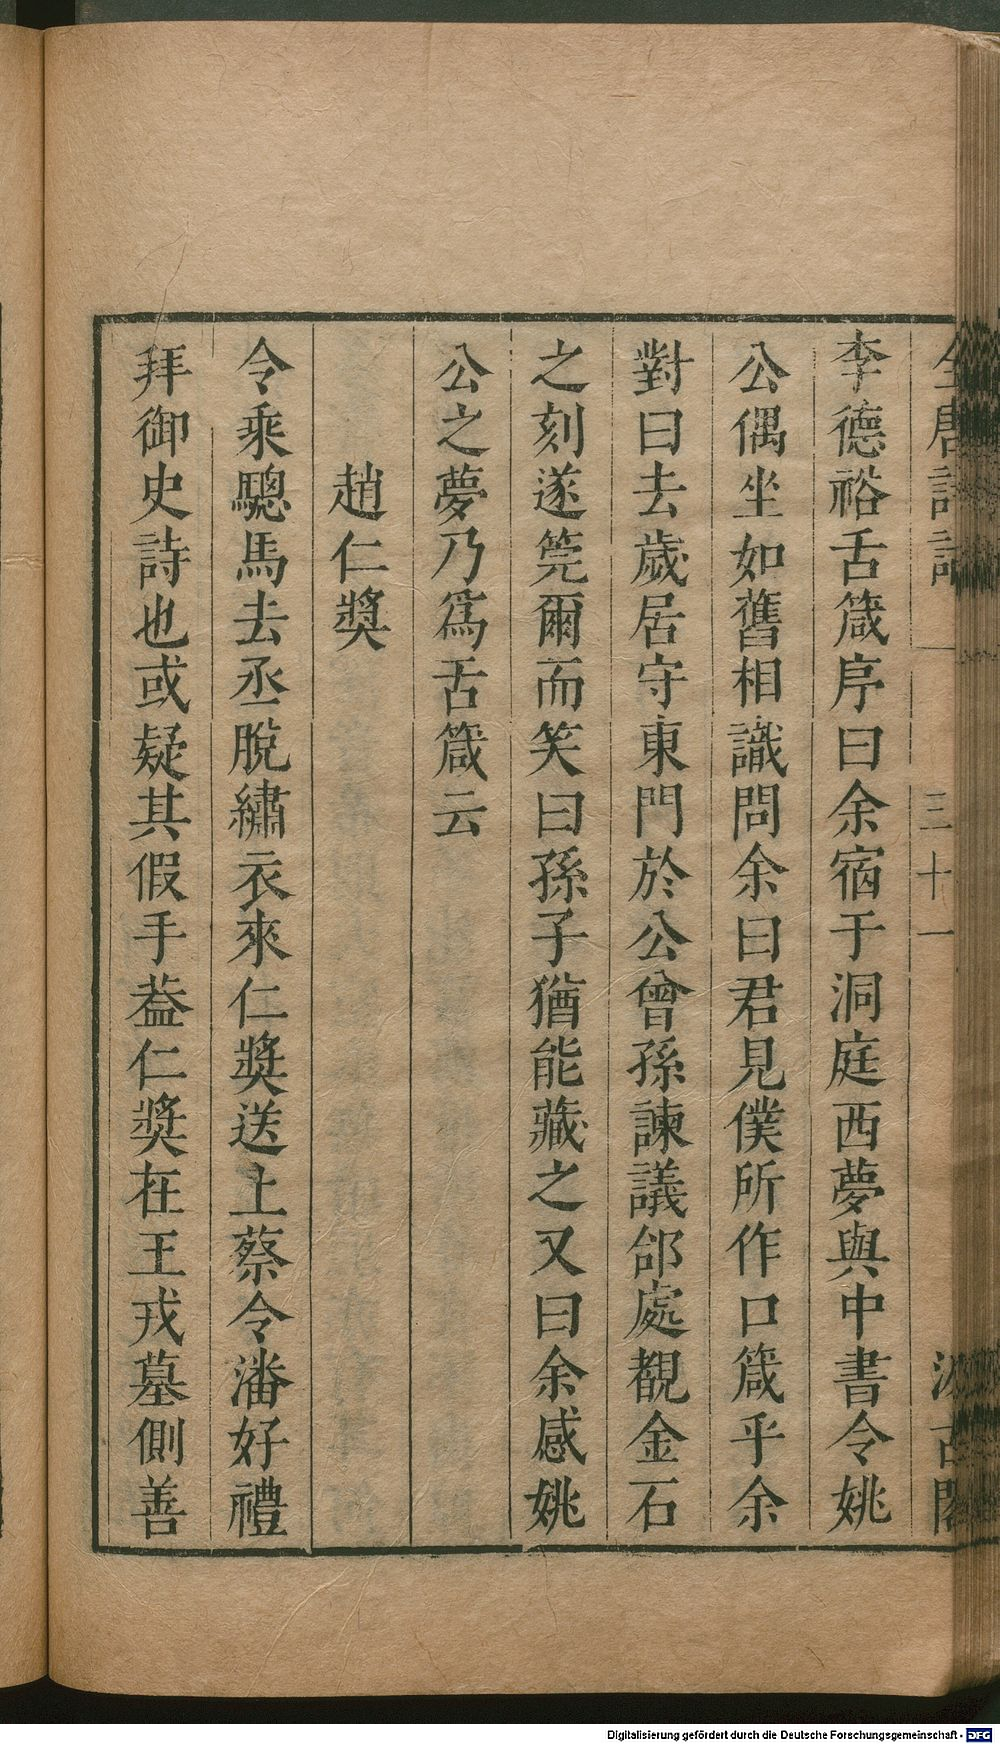 李德裕舌箴序曰余宿于洞庭西夢與中書令姚
公偶坐如舊相識問余曰君見僕所作口箴乎余
對曰去歲居守東門於公曾孫諫議郃處覩金石
之刻遂筦爾而笑曰孫子猶能藏之又曰余感姚
公之夢乃爲舌箴云
趙仁獎
令乘驄馬去丞脫繡衣來仁獎送上蔡令潘好禮
拜御史詩也或疑其假手葢仁獎在王戎墓側善
三十一
Digitalisierung gefördert durch die Deutsche Forschungsgemeinschaft - DFG